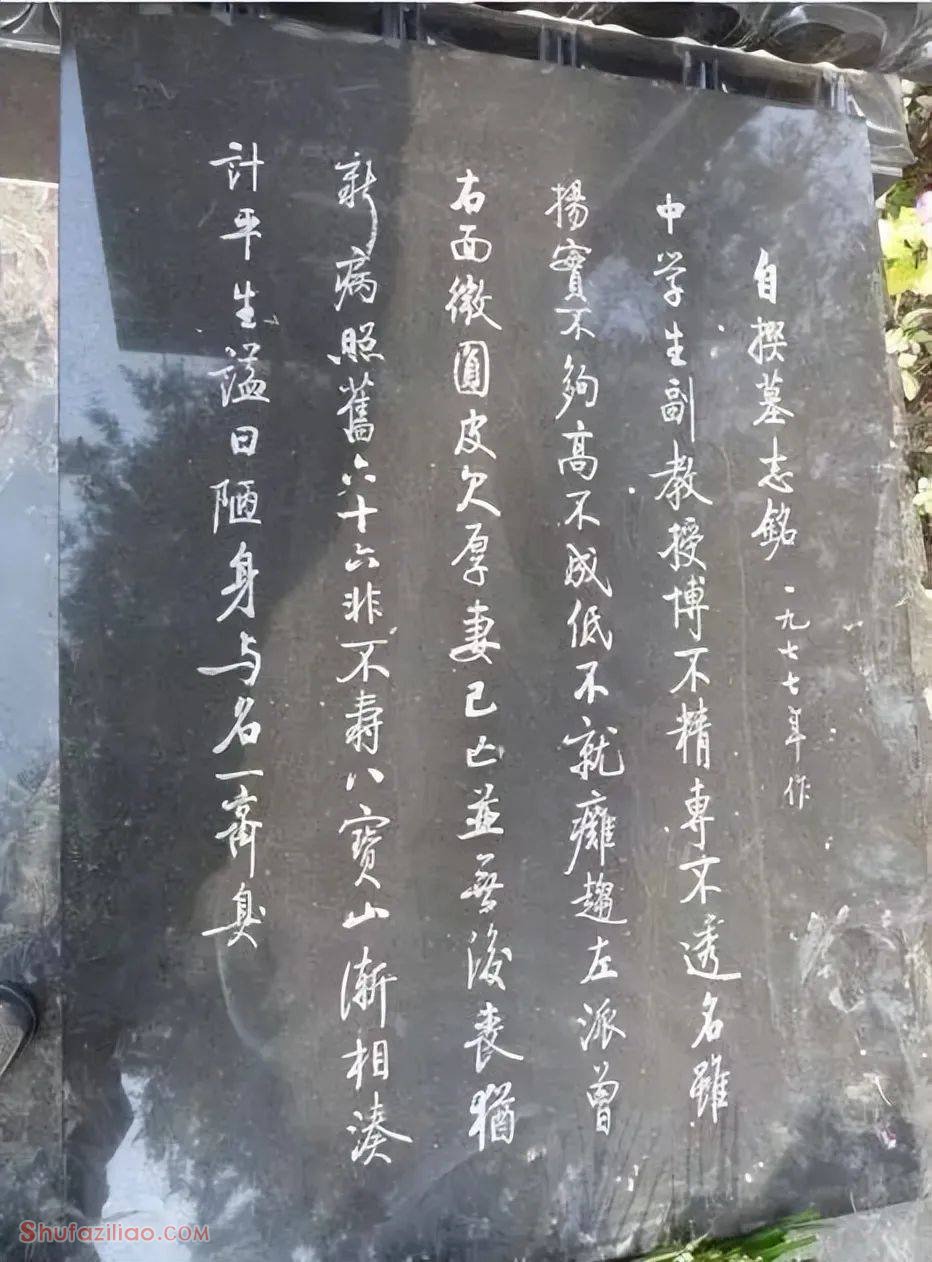 自撰墓志銘 一九七七年作
中学生副教授博不精專不透名雖
揚實不夠高不成低不就癱趨左派曾
右面微圓皮欠厚妻已亡並无後喪猶
新病照舊六十六非不寿八寶山漸相湊
計平生謚曰陋身与名一齊臭
Shufaziliao.com